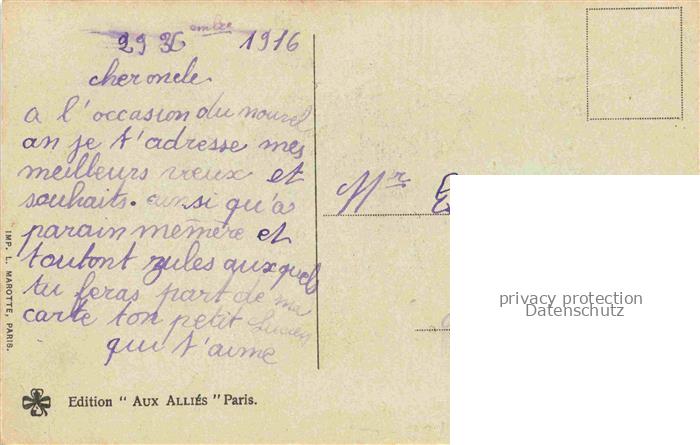 29 Xembre 1916
cher oncle
a l'occasion du nouvel
an je t'adresse mes
meilleurs vœux et
souhaits. ainsi qu'a
parain mémère et
tonton jules auxquels
tu feras part de ma
carte ton petit Lucien
qui t'aime
Mr
IMP. L. MAROTTE, PARIS.
Edition " AUX ALLIÉS " Paris.
privacy protection
Datenschutz